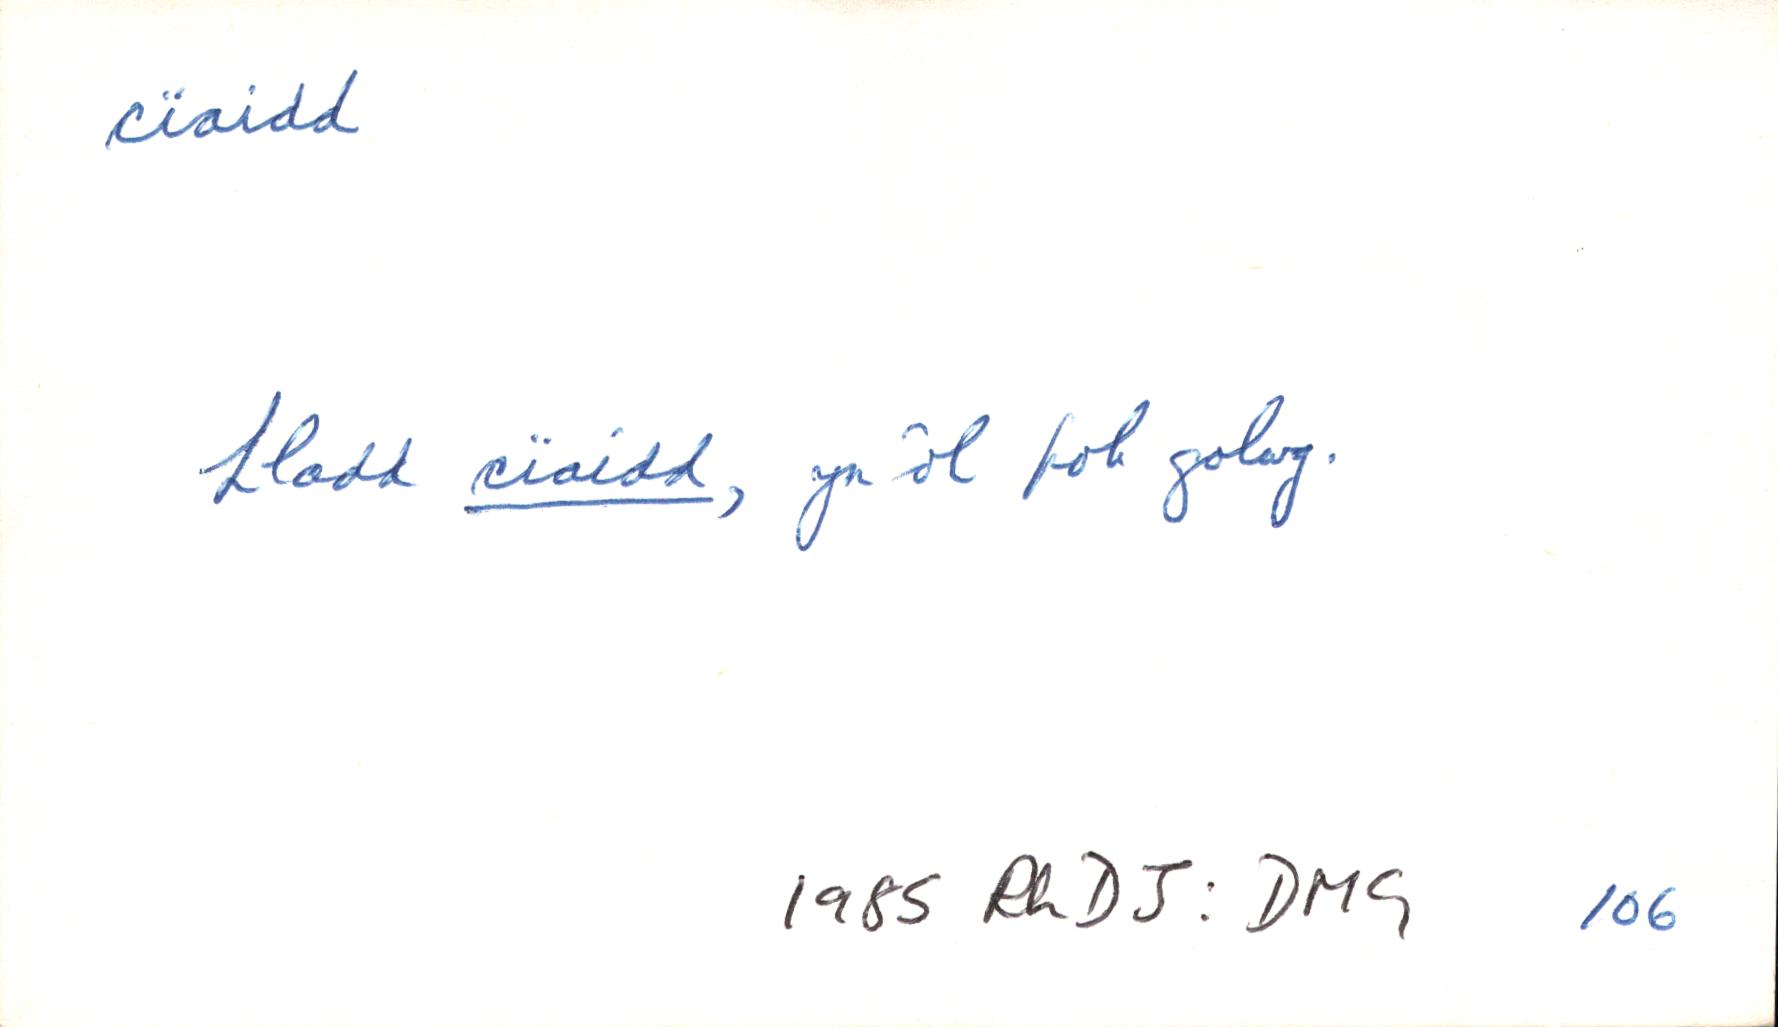 cïaidd
Lladd cïaidd, yn ôl pob golwg.
1985 RhDJ: DMG 106